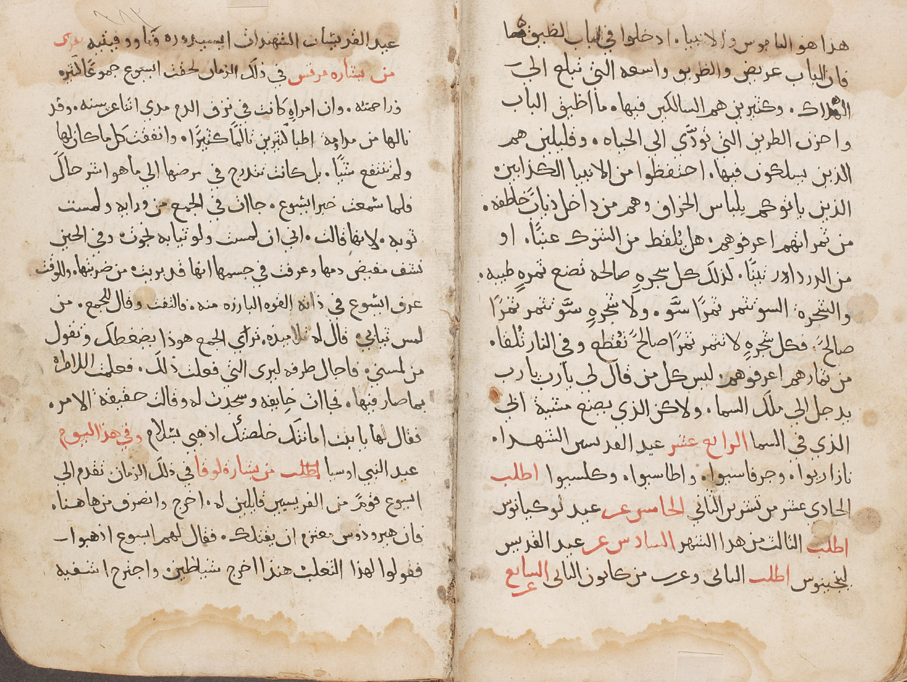 هذا هو الناموس والانبيا. ادخلوا في الباب الضيق فما
فان الباب عريض والطريق واسعه التي تبلغ الي
الهلاك. وكثيرين هم السالكين فيها. ما اضيق الباب
واحزن الطريق التي تودّي الي الحياه. وقليلين هم
الذين يسلكون فيها. احتفظوا من الانبيا الكذابين
الذين ياتوكم بلباس الخراف وهم من داخل ذياب خاطفه.
من ثمراتهم اعرفوهم. هل يلقط من الشوك عنبًا. او
من الدردار تينًا. كذلك كل شجرهٍ صالحه تصنع ثمرهٍ طيبه.
والشجره السو تثمر ثمرًا سَّو. ولا شجرهٍ سَّو تثمر ثمرًا
صالحًا. فكل شجرهٍ لا تثمر ثمرًا صالحًا تُقطع وفي النار تُلقا.
من ثمارهم اعرفوهم. ليس كل من قال لي يا رب يا رب
يدخل الي ملك السما. ولاكن الذي يصنع مشية ابي
الذي في السما الرابع عشر عيد القديسين الشهدا.
اطلب
الحادي عشر من تشرين الثاني الخامس عشر عيد لوكيانوس
اطلب الثالث من هذا الشهر السادس عشر عيد القديس
لنجينوس اطلب الثاني وعرب من كانون الثاني السابع عشر
عيد القديسات الشهيدات
من بشاره مرقس في ذلك الزمان لحقت ايسوع جموعًا كثيره
وزاحمته. وان امراهٍ كانت في نزف الدم مدي اثنا عشر سنه. وقد
نالها من مداوية اطبا كثيرين تالمًا كثيرًا. وانفقت كل ما كان لها
ولم تنتفع شيًّا. بل كانت تتدرج في مرضها الي ما هو اشر حالًا
فلما سمعت خبر ايسوع. جاات في الجمع من ورايه ولمست
ثوبه. لانها قالت. اني ان لمست ولو ثيابه نجوت وفي الحين
نشف مفيض دمها وعرفت في جسمها انها قد بريت من ضربتها. وللوقت
عرف ايسوع في ذاته القوه البارزه منه. فالتفت وقال للجمع. من
لمس ثيابي. قال له تلاميذه. تري الجمع هوذا يضغطك وتقول
من لمسني. فاجال طرفه ليري التي فعلت ذلك. فعلمت الامراه
بما صار فيها. فجاات خايفه وسجدت له وقالت حقيقة الامر.
فقال لها يا بنت امانتك خلصتك اذهبي بسلام وفي هذا اليوم
عيد النبي اوسيا اطلب من بشاره لوقا في ذلك الزمان تقدم الي
ايسوع قومًا من الفريسيين قايلين له. اخرج وانصرف من هاهنا.
فان هيرودوس معتزم ان يقتلك. فقال لهم ايسوع اذهبوا
فقولوا لهذا الثعلب هنذا اخرج شياطين واجترح اشفيه